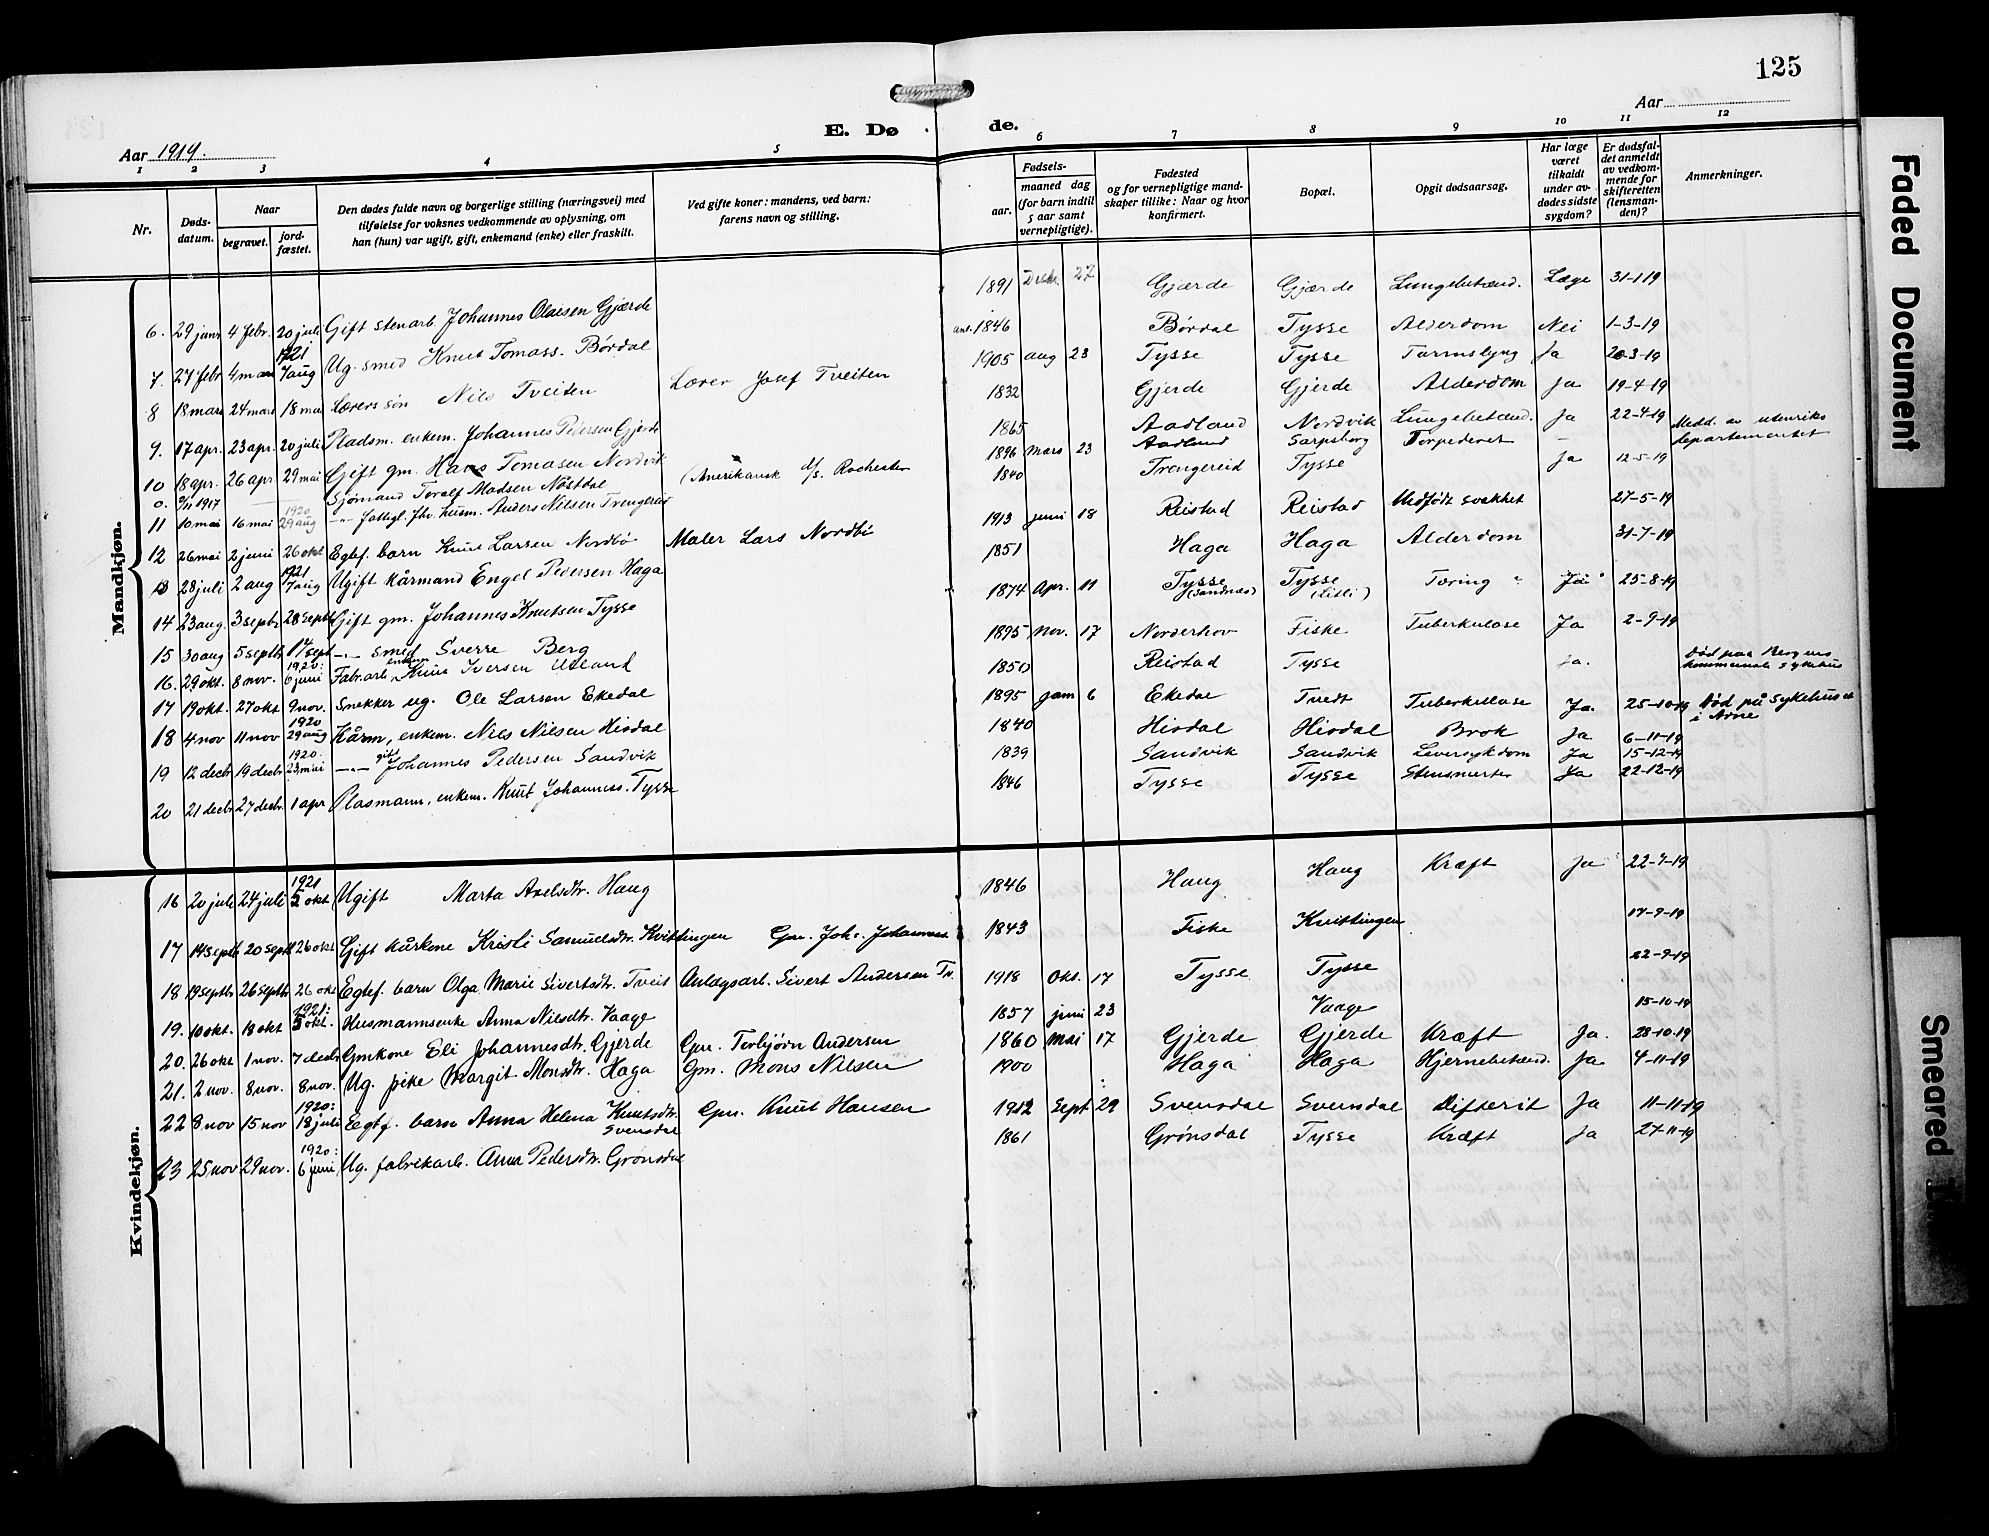 125
Aar
E. Dø de.
Aar 1919.
1 2 3 4 5 6 7 8 9 10 11 12
Nr.
Døds-datum.
Naar
begravet.
jord-fæstet.
Den dødes fulde navn og borgerlige stilling (næringsvei) med
tilføielse for voksnes vedkommende av oplysning, om
han (hun) var ugift, gift, enkemand (enke) eller fraskilt.
Ved gifte koner: mandens, ved barn:
farens navn og stilling.
Fødsels-
aar.
maaned dag
(for barn indtil
5 aar samt
vernepligtige).
Fødested
og for vernepligtige mand-
skaper tillike: Naar og hvor
konfirmert.
Bopæl.
Opgit dødsaarsag.
Har læge
været
tilkaldt
under av-
dødes sidste
sygdom?
Er dødsfal-
det anmeldt
av vedkom-
mende for
skifteretten
(lensman-
den)?
Anmerkninger.
Mandkjøn.
6. 29 janr 4 febr. 20 juli Gift stenarb. Johannes Olaisen Gjærde 1891 27 Gjærde Gjærde Lungebetænd. Læge 31-1-19
7. 27 febr 4 mars 1921 7 aug Ug. smed Knut Tomass. Børdal ant. 1846 Børdal Tysse Alderdom Nei 1-3-19
8 18 mars 24 mars 18 mai Lærers søn Nils Tveiten Lærer Josef Tveiten 1905 aug 23 Tysse Tysse Tarmslyng Ja 20-3-19
9. 17 apr. 23 apr. 20 juli Pladsm. enkem. Johannes Pedersen Gjerde 1832 Gjerde Gjerde Alderdom Ja 19-4-19
10 18 apr. 26 apr 29 mai Gift gm. Hans Tomasen Nordvik 1865 Aadland Nordvik Lungebetænd. Ja 22-4-19
0. 9/11 1917 — Sjømand Toralf Madsen Nøstdal (Amerikansk d/s. Rochester 1896 Mars 23 Aadland Sarpsborg Torpederet — Medd. av utenriks departementet
11 10 mai 16 mai 1920 29 aug —"— fattigl. fhv. husm. Anders Nilsen Trengereid 1840 Trengereid Tysse Ja 12-5-19
12 26 mai 2 juni 26 okt Egtef. barn Knut Larsen Nordbø Maler Lars Nordbø 1913 juni 18 Reistad Reistad Medfødt svakhet 27-5-19
13 28 juli 2 aug 1921 7 aug Ugift kårmand Engel Pedersen Haga 1851 Haga Haga Alderdom 31-7-19
14 23 aug. 3 septbr 28 septb Gift gm. Johannes Knutsen Tysse 1874 Apr. 11 Tysse (Sandnes) Tysse Tæring Ja 25-8-19
15 30 aug 5 septb 14 sept —"— smed Sverre Berg 1895 Nov. 17 Norderhov Fiske Tuberkulose Ja 2-9-19
16. 29 okt. 8 nov. 1920: 6 juni Fabr.arb. enkem Knut Iversen 1850 Reistad Tysse Ja. Død paa Bergens kommunale sykehus
17 19 okt. 27 okt 9 nov. Snekker ug. Ole Larsen Ekedal 1895 jan 6 Ekedal Tvedt Tuberkulose Ja. 25-10-19 Død på Sykehuset i Arne
18 4 nov 11 nov 1920 29 aug Kårm, enkem. Nils Nilsen Hisdal 1840 Hisdal Hisdal Brok Ja 6-11-19
19 12 decb 19 decbr 1920: 23 mai —"— gift Johannes Pedersen Sandvik 1839 Sandvik Sandvik Leversykdom Ja 15-12-19
20 21 decb 27 decbr. 1 apr Plasmann, enkem. Knut Johanness. Tysse 1846 Tysse Tysse Stensmerter Ja 22-12-19
Kvindekjøn.
16 20 juli 24 juli 1921 2 okt Ugift Marta Axelsdtr. Haug 1846 Haug Haug Kræft Ja 22-7-19
17 14 septb 20 septb 26 okt Gift kårkone Kristi Samuelsdtr. Kvittingen Gm. Joh. Johannes. 1843 Fiske Kvittingen 17-9-19
18 19 septbr 26 septbr 26 okt Egtef. barn Olga Marie Sivertsdtr. Tveit Anlægsarb. Sivert Andersen Tv. 1918 Okt. 17 Tysse Tysse 22-9-19
19. 10 okt. 18 okt 1921: 2 okt. Husmannsenke Anna Nilsdtr. Vaage 1857 juni 23 Vaage 15-10-19
20. 26 okt 1 nov. 7 decbr Gmkone Eli Johannesdtr. Gjerde Gm. Torbjørn Andersen 1860 Mai 17 Gjerde Gjerde Kræft Ja. 28-10-19
21. 2 nov. 8 nov. 8 nov. Ug. pike Margit Monsdtr. Haga Gm. Mons Nilsen 1900 Haga Haga Hjernebetænd. Ja 4-11-19
22 8 nov 15 nov 1920: 18 juli Egtf. barn Anna Helena Knutsdtr. Svensdal Gm. Knut Hansen 1912 Sept 29 Svensdal Svensdal Difterit Ja 11-11-19
23 25 nov 29 nov. 1920: 6 juni Ug. fabrikarb. Anna Pedersdtr. Grønsdal 1861 Grønsdal Tysse Kræft Ja 27-11-19
Faded Document
Smeared